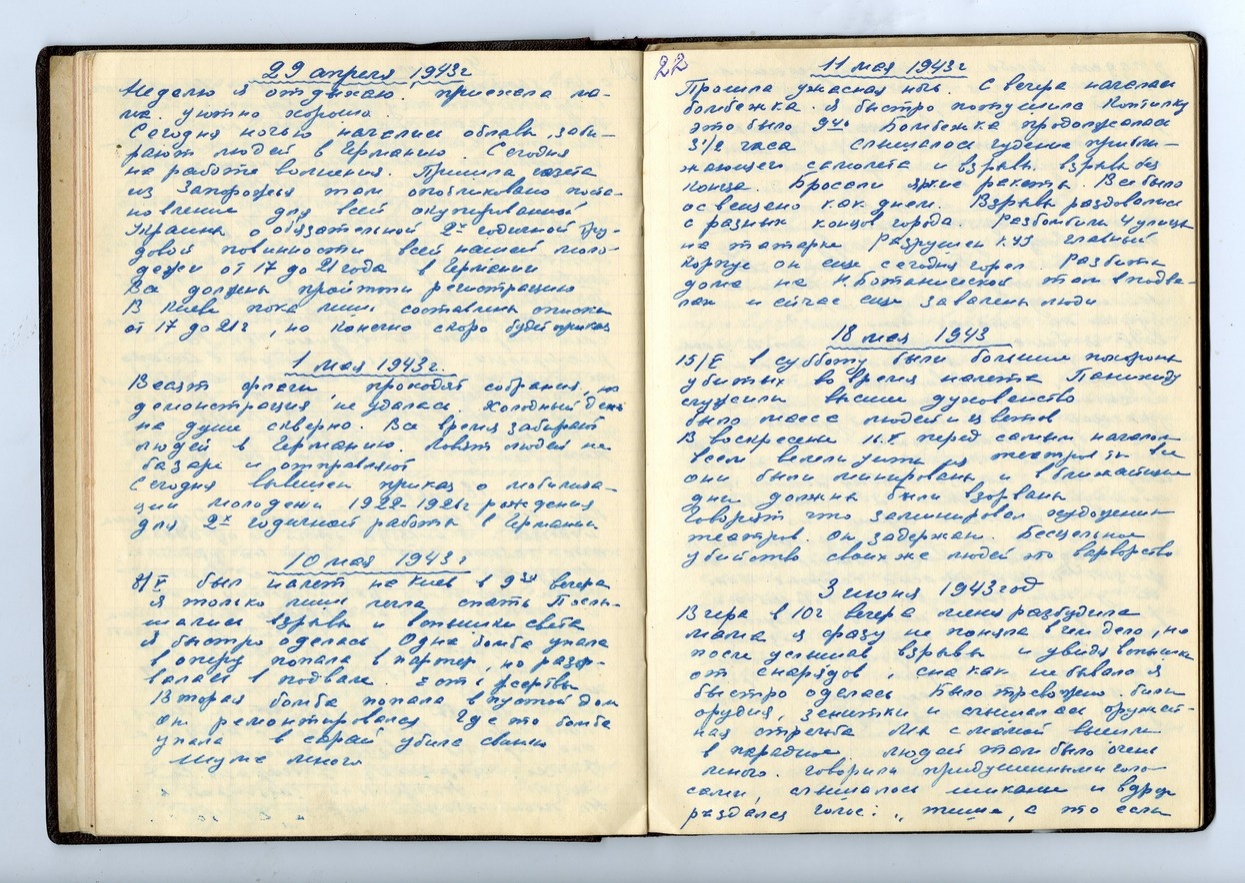 29 апреля 1943г
Неделю я отдыхаю, приехала ма-
ма. Уютно хорошо
Сегодня ночью начались облавы, заби-
рают людей в Германию. Сегодня
на работе волнения. Пришла газета
из Запорожья там опубликовано поста-
новление для всей окупированной
Украины о обязательной 2х годичной тру-
довой повинности всей нашей моло-
дежи от 17 до 21 года в Германии
Все должны пройти регистрацию
В Киеве пока лиш составлены списки
от 17 до 21г, но конечно скоро будет приказ
1 мая 1943г.
Висят флаги проходят собрания, но
демонстрация не удалась. Холодный день
на душе скверно. Все время забирают
людей в Германию. Ловят людей на
базаре и отправляют
Сегодня вывешен приказ о мобилиза-
ции молодежи 1922-192 г рождения
для 2х годичной работы в Германии
10 мая 1943г
8/V был налет на Киев в 9 вечера
Я только лиш легла спать Послы-
шались взрывы и вспышки света
Я быстро оделась Одна бомба упала
в оперу попала в партер, но разор-
валась в подвале. жертвы
Вторая бомба попала в пустой дом
он ремонтировался Где то бомба
упала в сарай убила свинью
Шума много
22
11 мая 1943г
Прошла ужасная ночь. С вечера началась
бомбежка. Я быстро потушила Коптилку
это было 9 Бомбежка продолжалась
3 1/2 часа слышалось гудение прибли-
жающегося самолета и взрывы. взрывы без
конца. Бросали яркие ракеты. Все было
освещено как днем. Взрывы раздавались
с разных концов города. Разбомбили 4 улицы
на татарке Разрушен главный
корпус он еще сегодня горел. Разбиты
дома на Н. Ботанической там в подва-
лах и сейчас еще завалены люди
18 мая 1943
15/V в субботу были большие похороны
убитых во время налета Панихиду
служили высшие духовенство
было масса людей и цветов
В воскресение 16.V перед самым началом
всем велели уйти из театров т.к. все
они были минированы и в ближайшие
дни должны были взорваны
Говорят что заминировал художник
театров. Он задержан. Бесцельное
убийство своих же людей это варварство
3 июня 1943 год
Вчера в 10г вечера меня разбудила
мама я сразу не поняла в чем дело, но
после услышав взрывы и увидя вспышки
от снарядов, сна как не бывало я
быстро оделась Было тревожно. били
орудия, зенитки и слышалась оружей-
ная стрельба Мы с мамой вышли
в парадное людей там было очень
много. Говорили придушенными голо-
сами, слышалось шиканье и вдруг
раздался голос: „тише, а то если